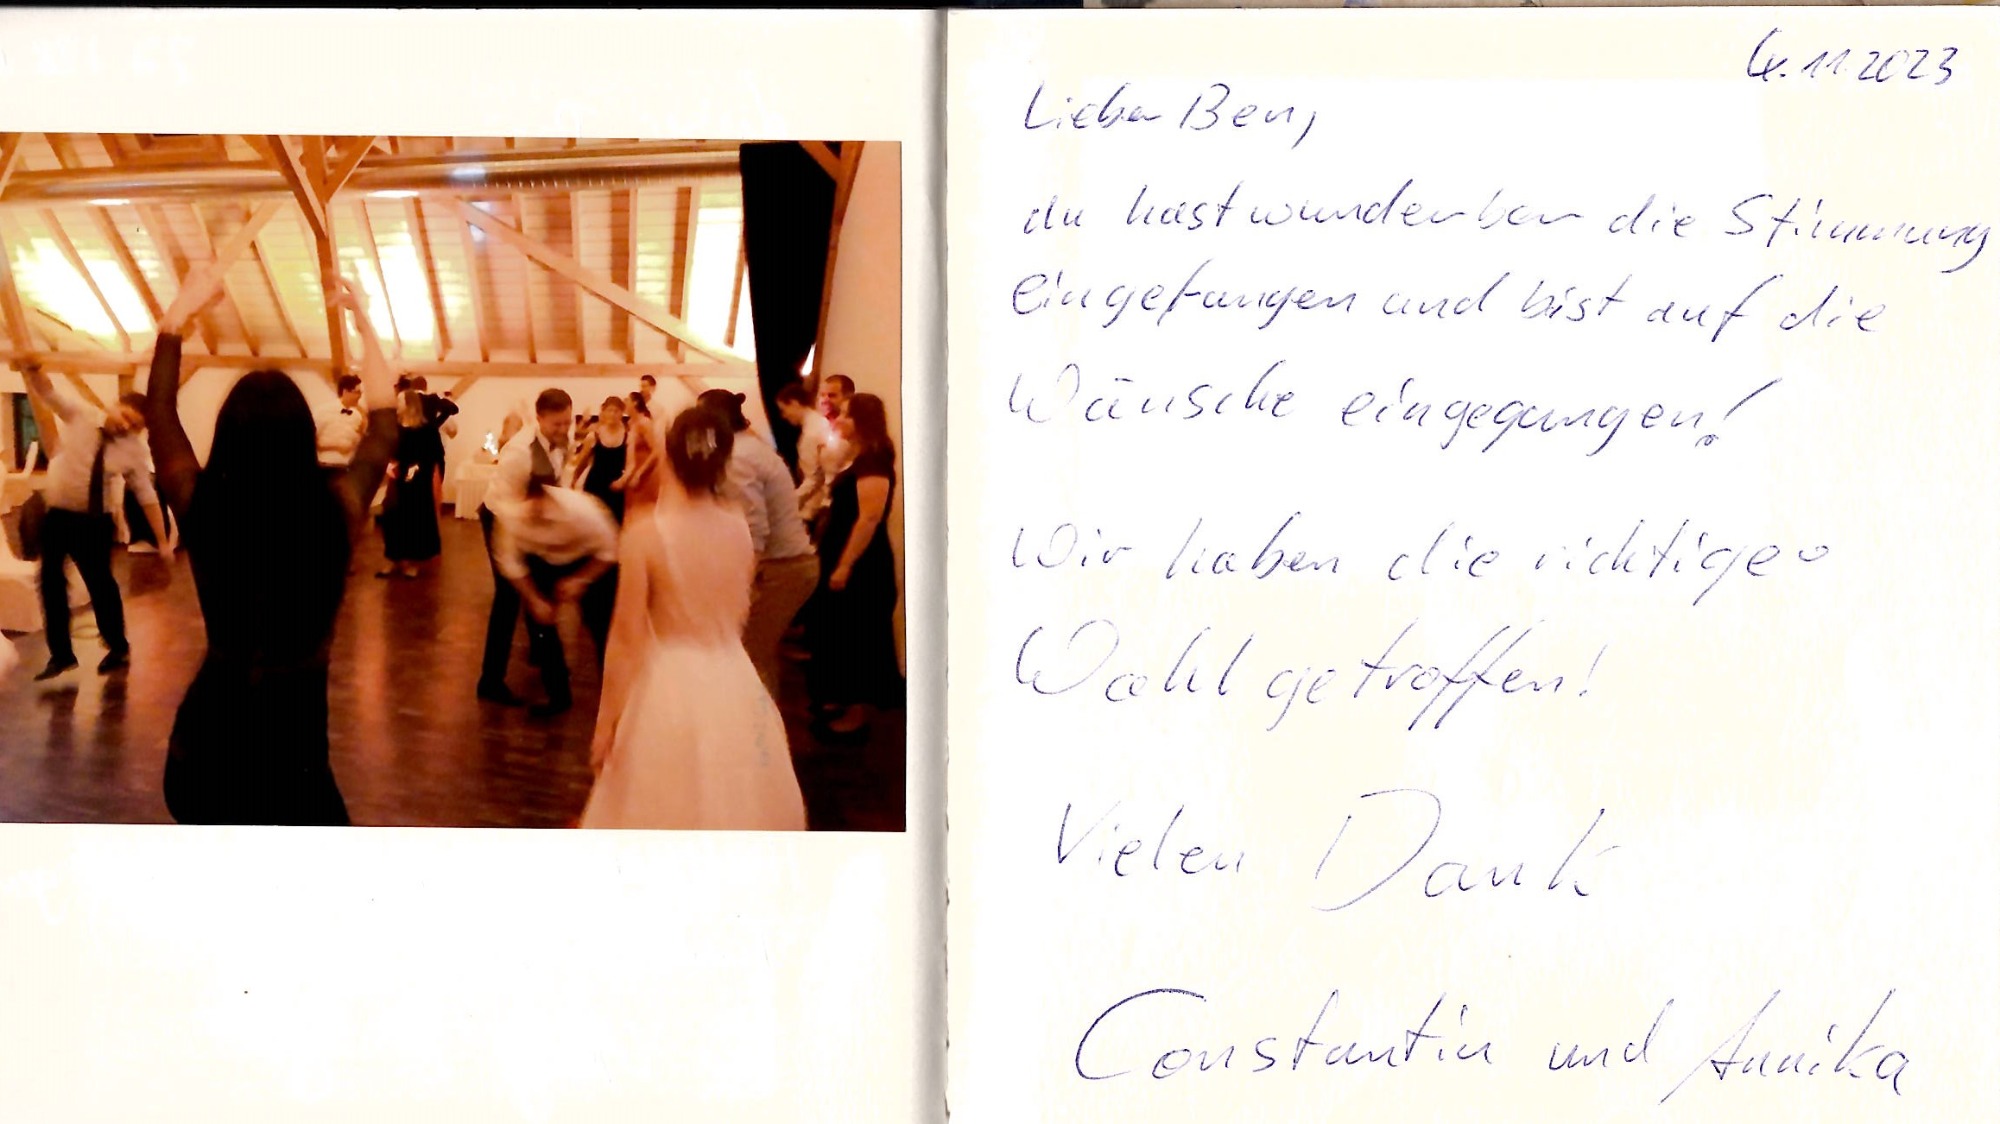 4.11.2023
Lieber Ben,
du hast wunderbar die Stimmung
eingefangen und bist auf die
Wünsche eingegangen!
Wir haben die richtige
Wahl getroffen!
Vielen Dank
Constantin und Annika